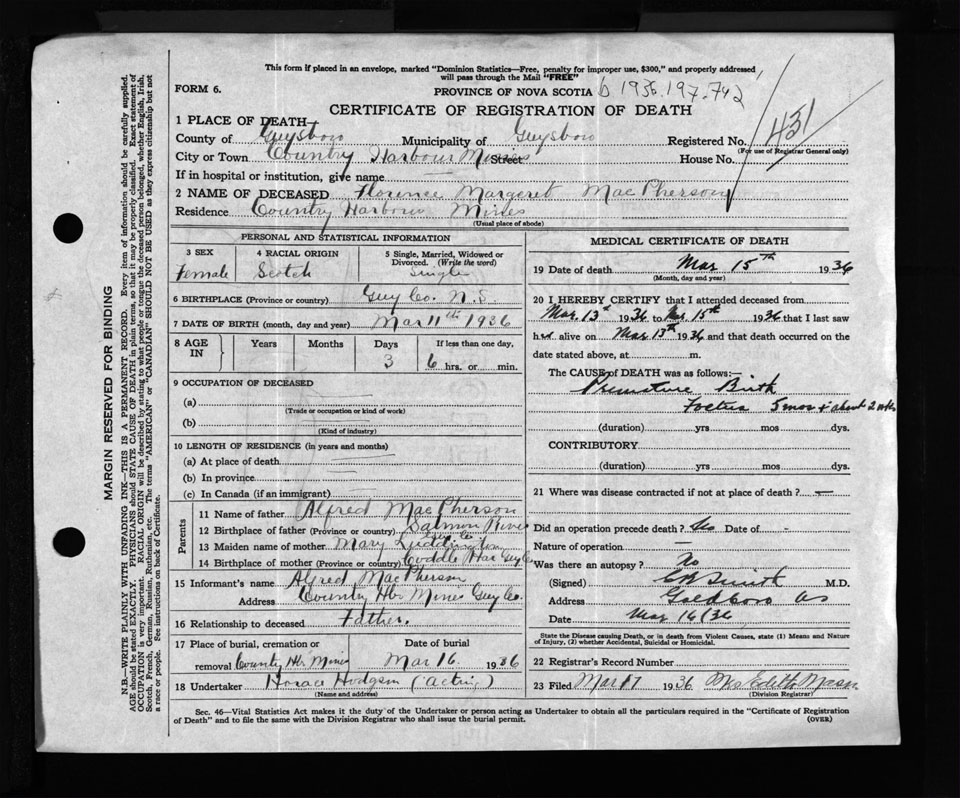 This form if placed in an envelope, marked "Dominion Statistics—Free, penalty for improper use, $300," and properly addressed,
will pass through the Mail "FREE"
FORM 6.
PROVINCE OF NOVA SCOTIA
1936.197.742
CERTIFICATE OF REGISTRATION OF DEATH
431
1 PLACE OF DEATH
County of Guysboro Municipality of Guysboro Registered No.
(For use of Registrar General only)
City or Town Country Harbour Mines Street House No.
If in hospital or institution, give name
2 NAME OF DECEASED Florence Margaret MacPherson
Residence Country Harbour Mines
(Usual place of abode)
PERSONAL AND STATISTICAL INFORMATION
3 SEX 4 RACIAL ORIGIN 5 Single, Married, Widowed or
Divorced. (Write the word)
Female Scotch Single
6 BIRTHPLACE (Province or country) Guy Co. N.S.
7 DATE OF BIRTH (month, day and year) Mar 11th 1936
8 AGE IN Years Months Days If less than one day,
3 6 hrs. or min.
9 OCCUPATION OF DECEASED
(a)
(Trade or occupation or kind of work)
(b)
(Kind of industry)
10 LENGTH OF RESIDENCE (in years and months)
(a) At place of death
(b) In province
(c) In Canada (if an immigrant)
Parents
11 Name of father Alfred MacPherson
12 Birthplace of father (Province or country) Salmon River
13 Maiden name of mother Mary Luddington
14 Birthplace of mother (Province or country) Coddle Har Guy Co
15 Informant's name Alfred MacPherson
Address Country Hbr Mines Guy Co.
16 Relationship to deceased Father.
17 Place of burial, cremation or Date of burial
removal Country Hr. Mines Mar 16 1936
18 Undertaker Horace Hodgson (acting)
(Name and address)
MEDICAL CERTIFICATE OF DEATH
19 Date of death Mar 15th 1936
(Month, day and year)
20 I HEREBY CERTIFY that I attended deceased from
Mar. 13th 1936 to Mar. 15th 1936 that I last saw
her alive on Mar 13th 1936 and that death occurred on the
date stated above, at m.
The CAUSE of DEATH was as follows:—
Premature Birth
Foetus 5 mos + about 2 wks
(duration) yrs mos dys.
CONTRIBUTORY
(duration) yrs mos dys.
21 Where was disease contracted if not at place of death? —
Did an operation precede death? No Date of -
Nature of operation —
Was there an autopsy? No
(Signed) Smith M.D.
Address Goldboro
Date Mar 16/36
State the Disease causing Death, or in death from Violent Causes, state (1) Means and Nature
of Injury, (2) whether Accidental, Suicidal or Homicidal.
22 Registrar's Record Number
23 Filed Mar 17 1936 Mrs Edith Mason
(Division Registrar)
Sec. 46—Vital Statistics Act makes it the duty of the Undertaker or person acting as Undertaker to obtain all the particulars required in the "Certificate of Registration
of Death" and to file the same with the Division Registrar who shall issue the burial permit.
(OVER)
MARGIN RESERVED FOR BINDING
N.B.—WRITE PLAINLY WITH UNFADING INK—THIS IS A PERMANENT RECORD. Every item of information should be carefully supplied.
AGE should be stated EXACTLY. PHYSICIANS should STATE CAUSE OF DEATH in plain terms, so that it may be properly classified. Exact statement of
OCCUPATION is very important. RACIAL ORIGIN will be described by stating to what people or tongue the deceased person belonged, whether English, Irish,
Scotch, French, German, Russian, Ruthenian, etc. The terms "AMERICAN" or "CANADIAN" SHOULD NOT BE USED as they express citizenship but not
a race or people. See instructions on back of Certificate.